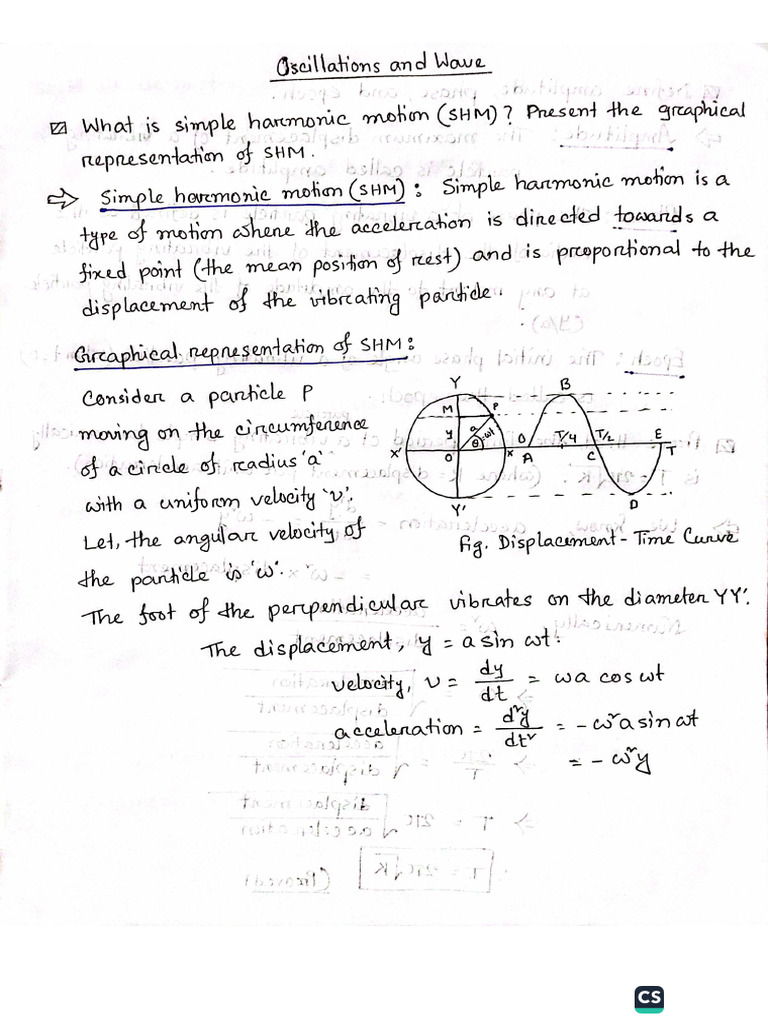 Oscillations and Wave
What is simple harmonic motion (SHM)? Present the graphical
representation of SHM.
⇒ Simple harmonic motion (SHM): Simple harmonic motion is a
type of motion where the acceleration is directed towards a
fixed point (the mean position of rest) and is proportional to the
displacement of the vibrating particle.
Graphical representation of SHM:
Consider a particle P
moving on the circumference
of a circle of radius 'a'
with a uniform velocity 'v'.
Let, the angular velocity of
the particle is 'ω'.
Y B
M P
y a θ ωt O T/4 T/2 E
X' O X A C T
Y' D
Fig. Displacement-Time Curve
The foot of the perpendicular vibrates on the diameter YY'.
The displacement, y = a sin ωt.
velocity, v = dy/dt = ωa cos ωt
acceleration = d²y/dt² = -ω²a sin ωt
= -ω²y
CS